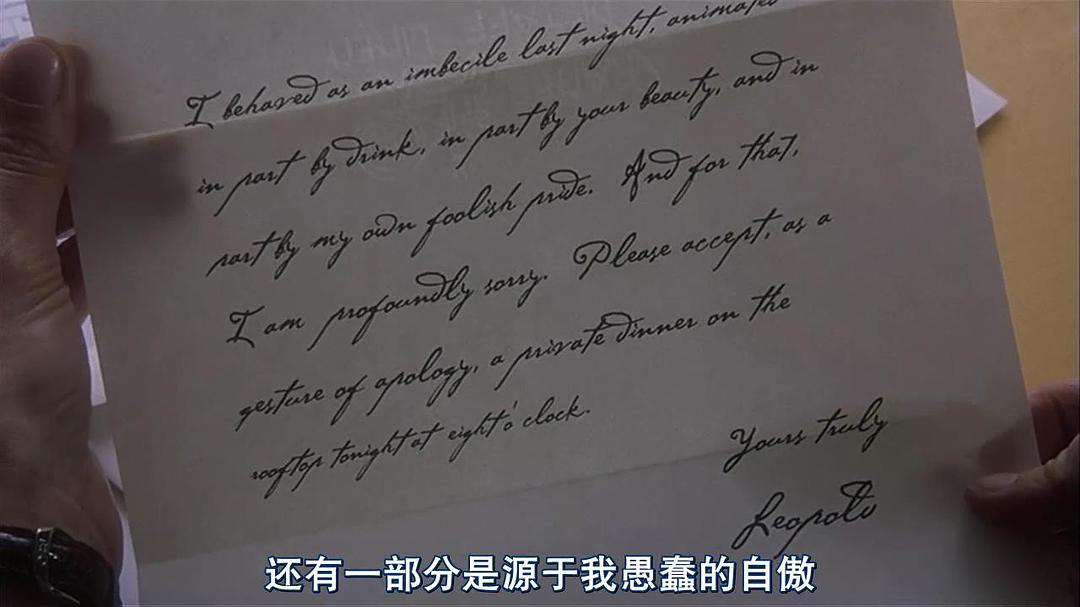 I behaved as an imbecile last night, animated
in part by drink, in part by your beauty, and in
part by my own foolish pride. And for that,
I am profoundly sorry. Please accept, as a
gesture of apology, a private dinner on the
rooftop tonight at eight o'clock.
Yours truly
Leopold
还有一部分是源于我愚蠢的自傲